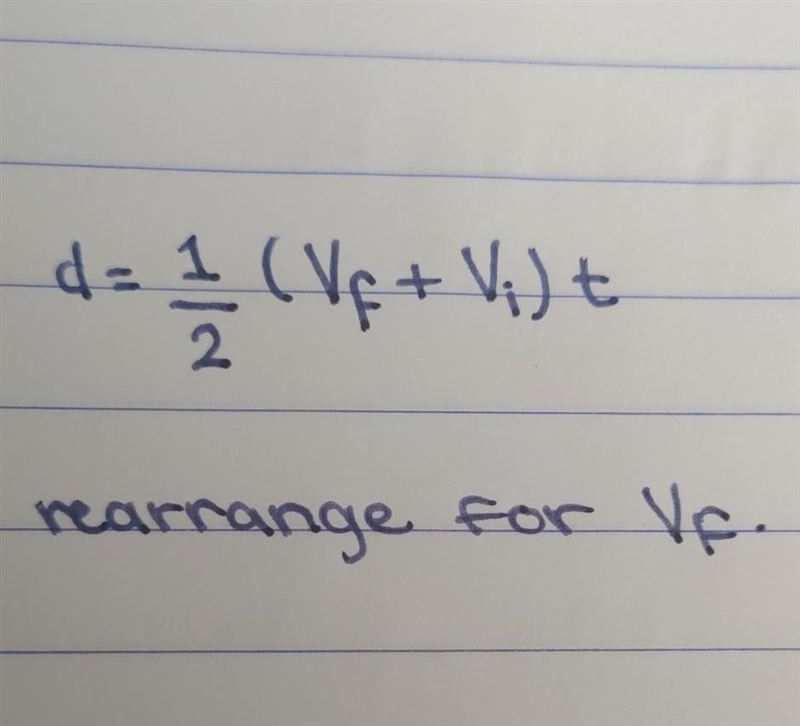 d = 1/2 (Vf + Vi) t
rearrange for Vf.